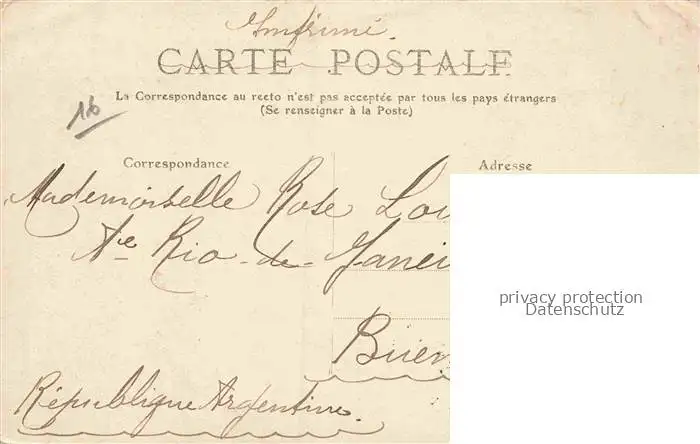 Imprimé.
CARTE POSTALE
La Correspondance au recto n'est pas acceptée par tous les pays étrangers
(Se renseigner à la Poste)
16
Correspondance
Adresse
Mademoiselle Rose Lou
Ave Rio-de-Janei
privacy protection
Datenschutz
Buen
République Argentine.